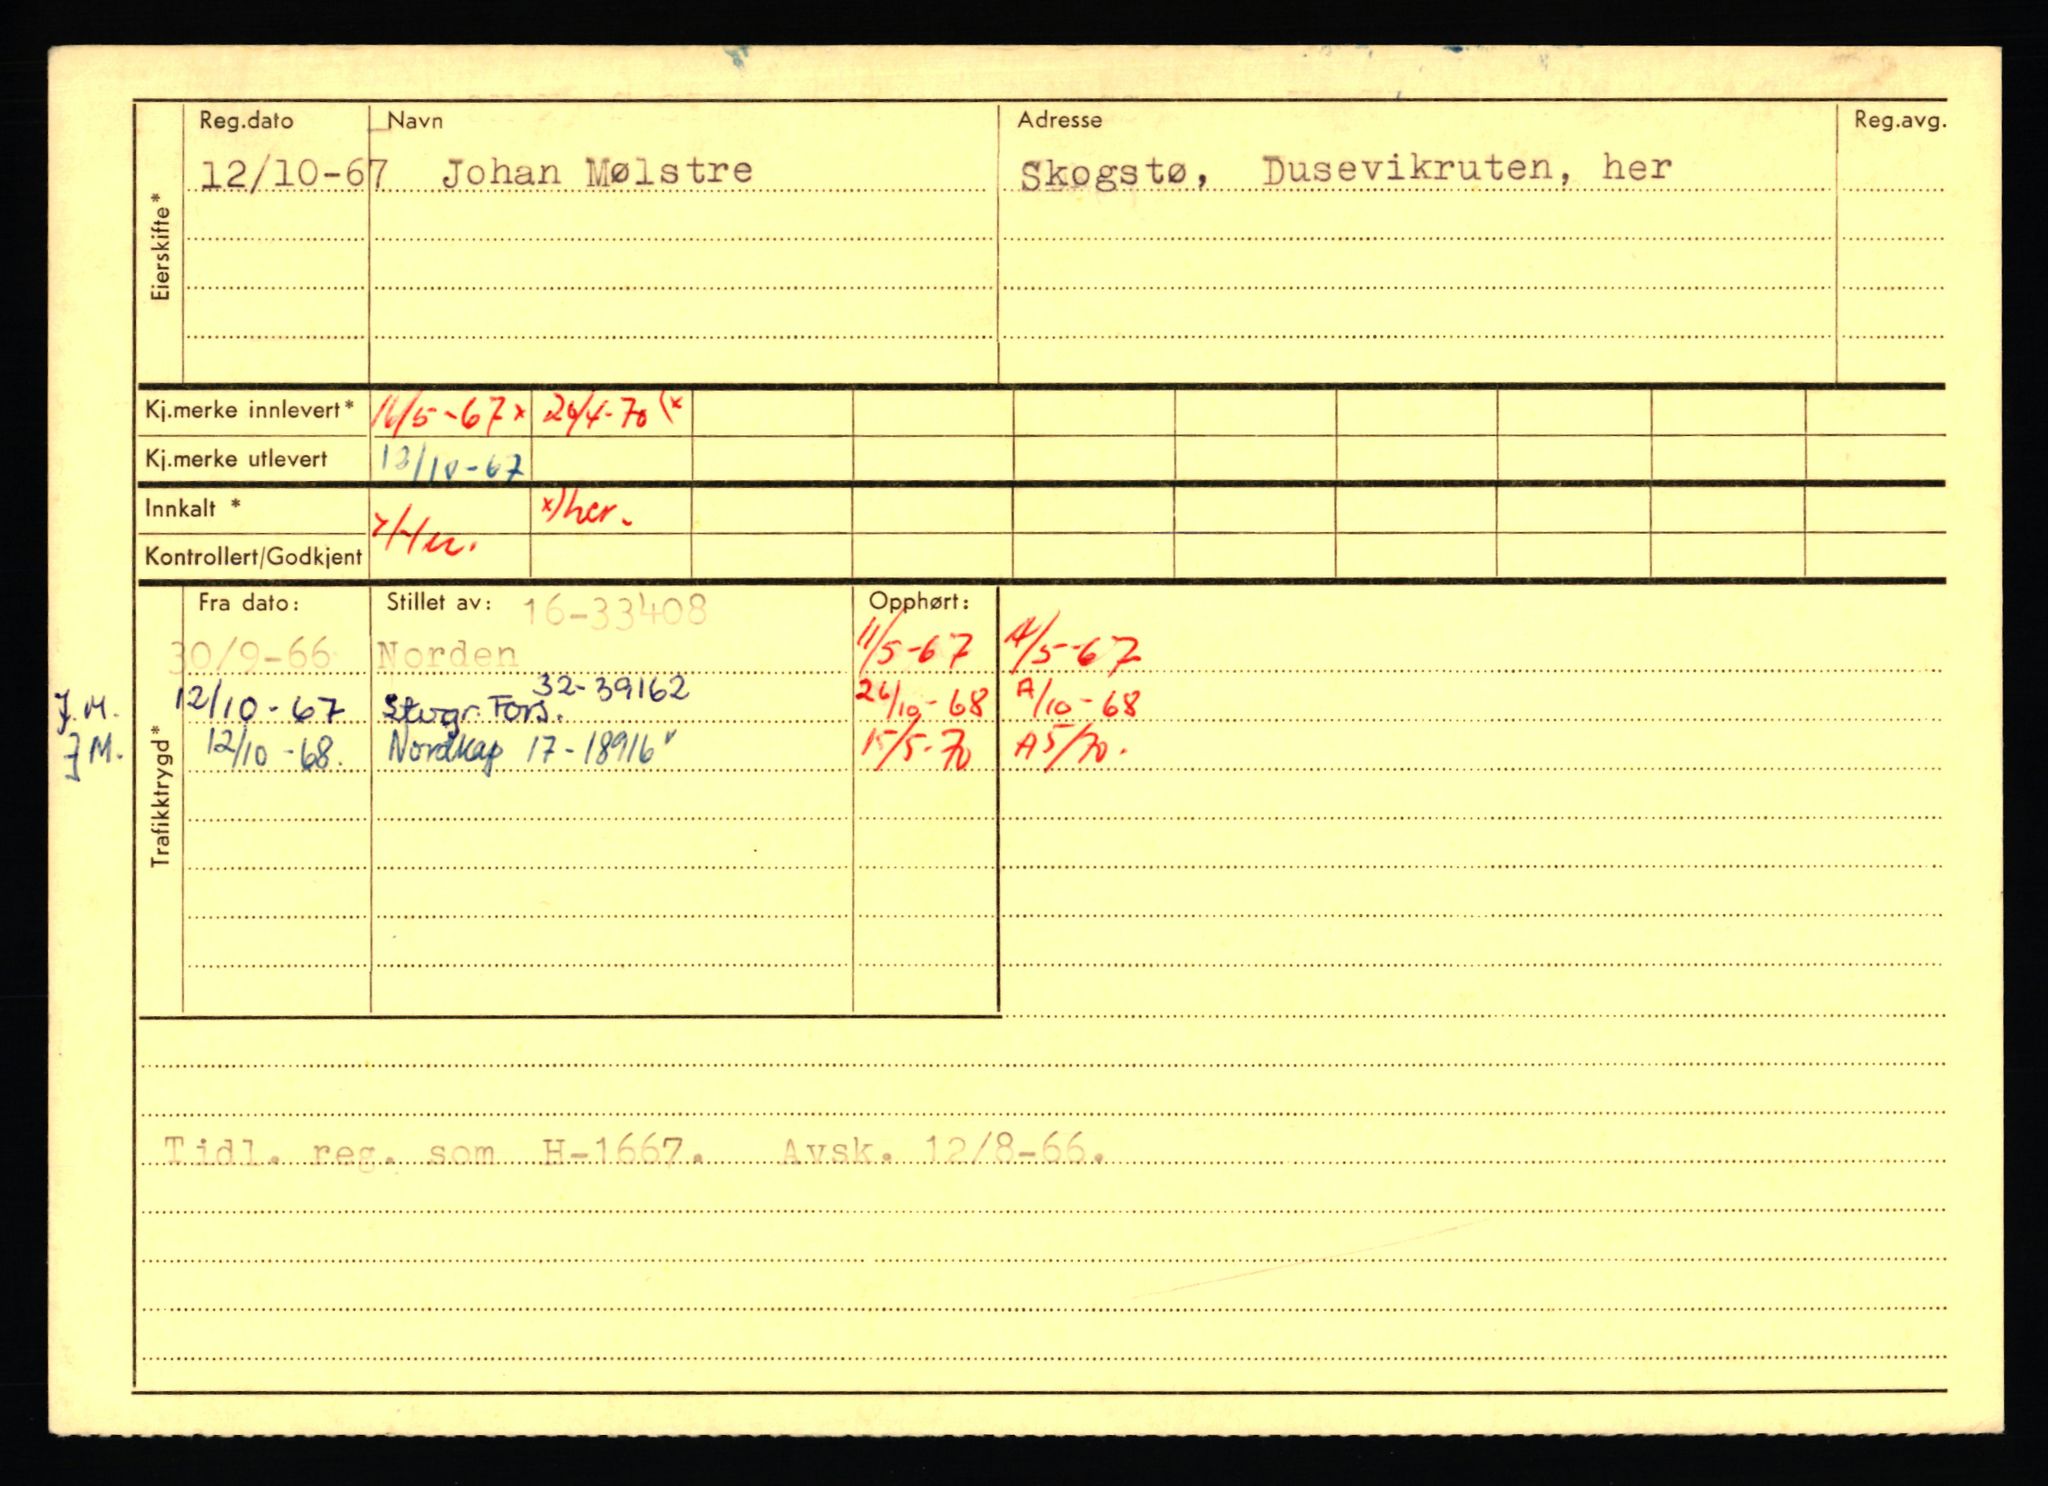 Reg.dato Navn Adresse Reg.avg.
12/10-67 Johan Mølstre Skogstø, Dusevikruten, her
Eierskifte*
Kj.merke innlevert* 16/5-67 x 20/4-70 (x
Kj.merke utlevert 12/10-67
Innkalt * x) her.
Kontrollert/Godkjent
Fra dato: Stillet av: 16-33408 Opphørt:
30/9-66 Norden 11/5-67 A/5-67
32-39162
J.M. 12/10-67 Stvgr. Fors. 26/10-68 A/10-68
J M. 12/10-68. Nordkap 17-18916 15/5-70 A5/70.
Trafikktrygd*
Tidl. reg. som H-1667. Avsk. 12/8-66.